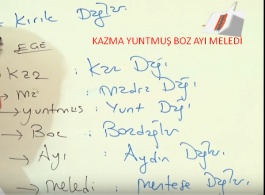 Kırık Dağlar
EGE
KAZMA YUNTMUŞ BOZ AYI MELEDİ
Kaz : Kaz Dağı
→ Ma : Madra Dağı
→ yuntmus : Yunt Dağı
→ Boz : Bozdağlar
→ Ayı : Aydın Dağları
→ meledi : menteşe Dağları